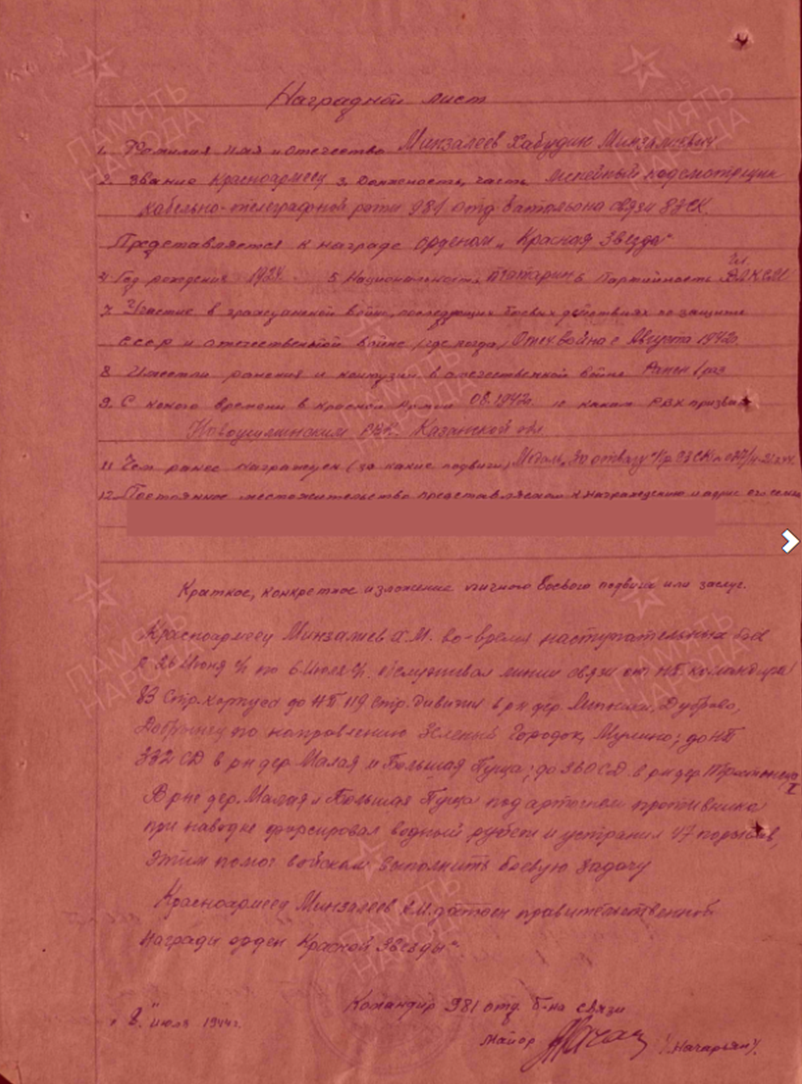 4
Наградной лист
1. Фамилия имя и отчество Минзалеев Хабудин Минзалиевич
2. Звание Красноармеец 3. Должность, часть линейный надсмотрщик
кабельно-телеграфной роты 981 отд. батальона связи 83СК.
Представляется к награде орденом „Красная Звезда“
4 Год рождения 1924 5 Национальность татарин 6 Партийность Чл ВЛКСМ
7 Участие в гражданской войне, последующих боевых действиях по защите
СССР и отечественной войне (где, когда) Отеч война с Августа 1942г.
8 Имеет ли ранения и контузии в отечественной войне Ранен 1 раз
9. С какого времени в Красной Армии 08.1942г. 10 каким РВК призван
РВК. Казанской обл
11 Чем ранее награжден (за какие подвиги) Медаль „За отвагу“ Пр.
12 Постоянное местожительство представляемого к награждению и адрес его семьи
Краткое, конкретное изложение личного боевого подвига или заслуг.
Красноармеец Минзалиев Х.М. во-время наступательных боев
с Июня с/г по 6 Июля с/г. обслуживал линии связи от НП командира
83 Стр. корпуса до НП 119 Стр. дивизии в р-н дер. Дуброво,
по направлению Зеленый Городок, до НП
332 СД в р-н дер Малая и Большая Пуща; до 360 СД в р-н дер.
В р-не дер. Малая и Большая Пуща под артогнем противника
при наводке форсировал водный рубеж и устранил 47 порывов,
этим помог войскам выполнить боевую задачу
Красноармеец Минзалеев Х.М. достоен правительственной
Награды орден Красной Звезды“
Командир 981 отд. б-на связи
„8“ Июля 1944г.
Майор /Начарьян/
ПАМЯТЬ НАРОДА
ПАМЯТЬ НАРОДА
ПАМЯТЬ НАРОДА
ПАМЯТЬ НАРОДА
ПАМЯТЬ НАРОДА
ПАМЯТЬ НАРОДА